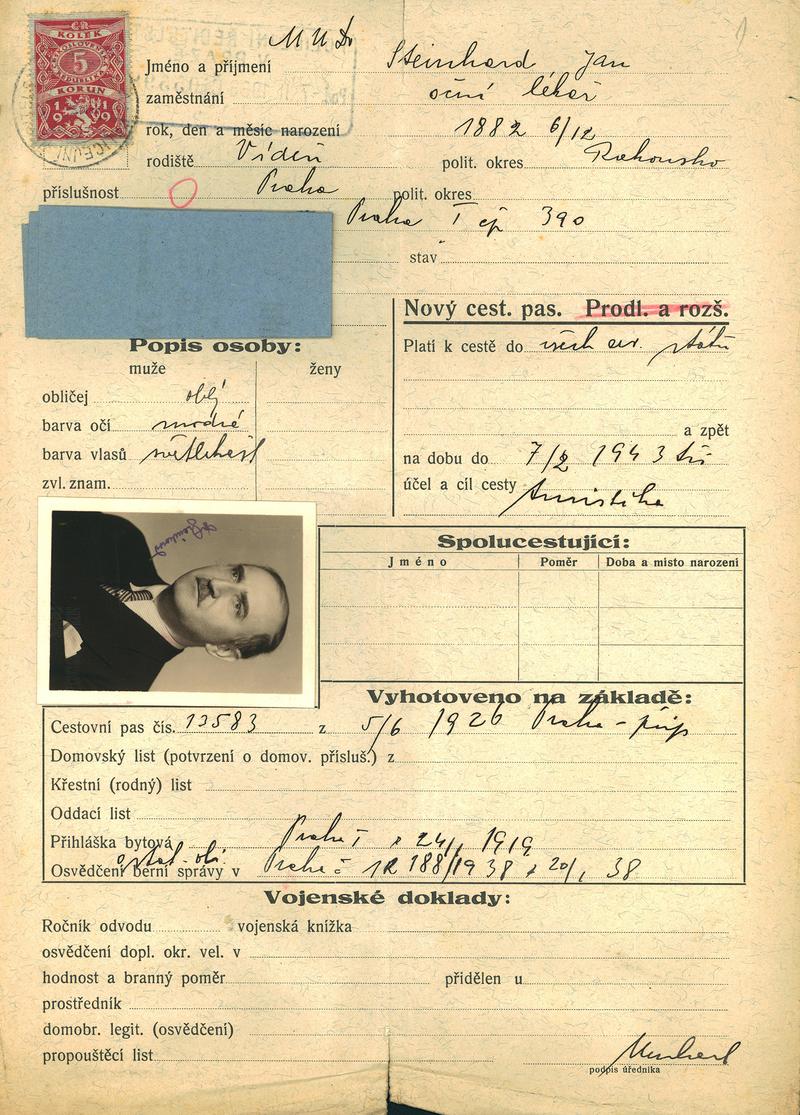 ČR
KOLEK
ČESKOSLOVENSKÁ
5
REPUBLIKA
KORUN
19 19
MUDr
Jméno a příjmení Steinhard Jan
zaměstnání oční lékař
rok, den a měsíc narození 1882 6/12
rodiště Vídeň polit. okres Rakousko
příslušnost Praha polit. okres
Praha I čp 390
stav
Nový cest. pas. Prodl. a rozš.
Popis osoby:
Platí k cestě do všech ev. států
muže ženy
obličej oblý
barva očí modré
a zpět
barva vlasů
na dobu do 7/2 1943
zvl. znam.
účel a cíl cesty turistika
Spolucestující:
Jméno Poměr Doba a místo narození
Vyhotoveno na základě:
Cestovní pas čís. 13583 z 5/6 1926 Praha -
Domovský list (potvrzení o domov. přísluš.) z
Křestní (rodný) list
Oddací list
Přihláška bytová Praha I z 24/1 1919
Osvědčení berní správy v Praha č 1R 188/1938 z 20/1 38
Vojenské doklady:
Ročník odvodu vojenská knížka
osvědčení dopl. okr. vel. v
hodnost a branný poměr přidělen u
prostředník
domobr. legit. (osvědčení)
propouštěcí list
podpis úředníka